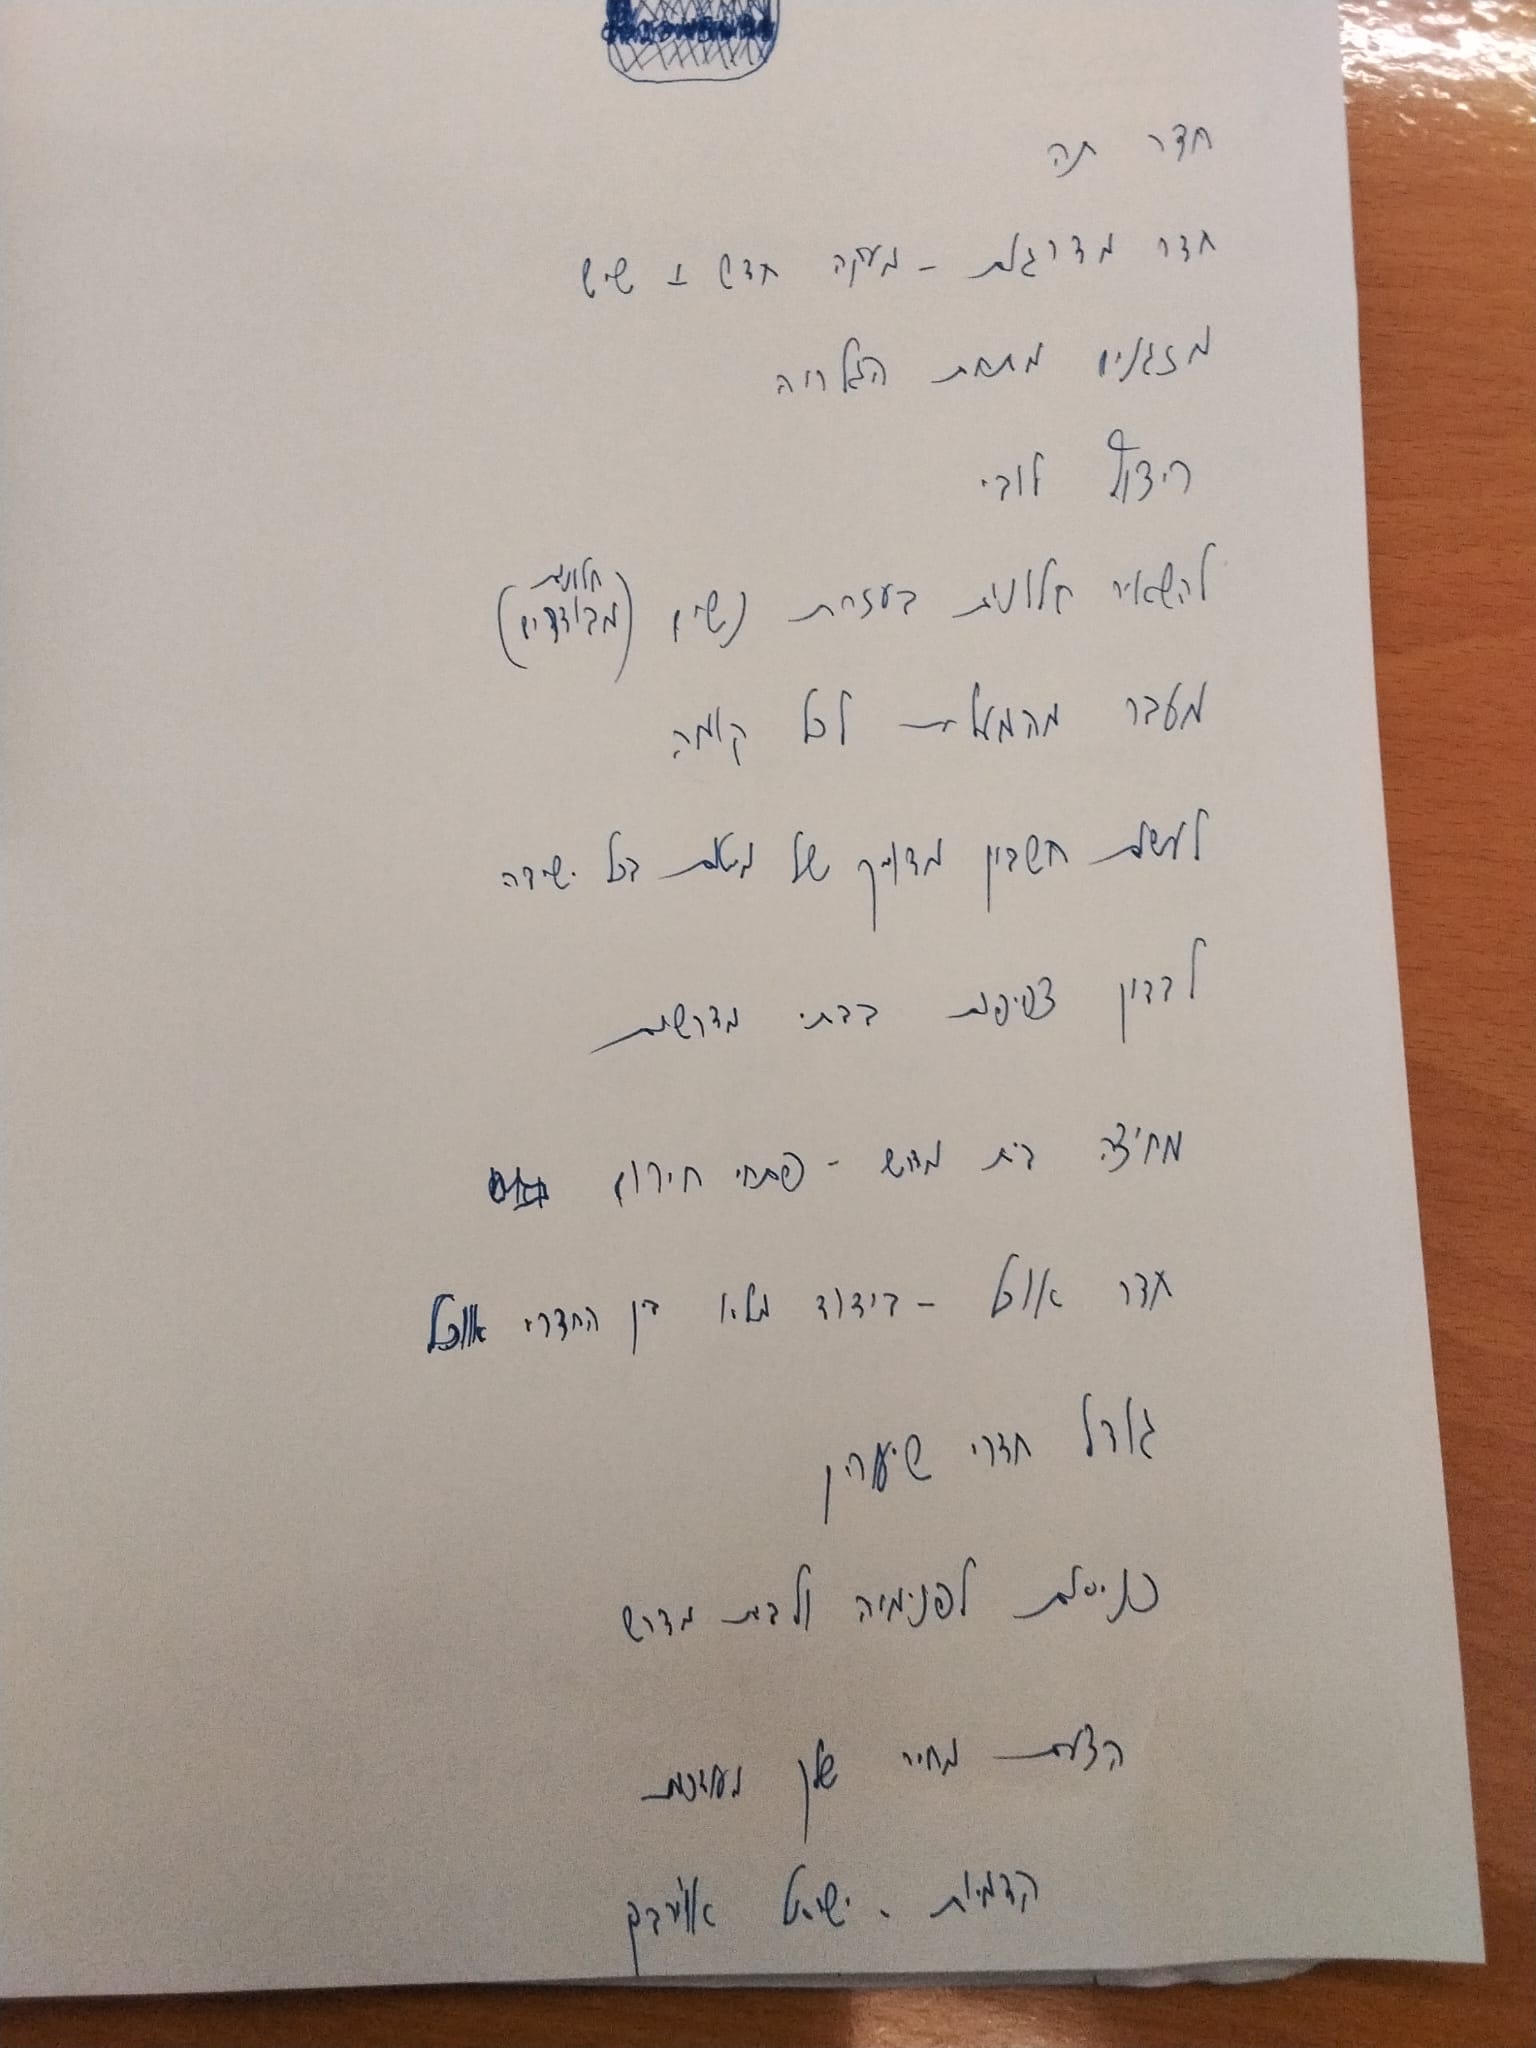 חדר תה
חדר מדרגות - מעקה חדש + שיש
מזגנים מתחת הגלריה
ריצוף לובי
להשאיר חלונות בעזרת נשים (חלונות מבודדים)
מעבר מהמעלית לכל קומה
לעשות חשבון מדויק של מיטות בכל ישיבה
לבדוק צפיפות בבתי מדרשות
מחיצה בית מדרש - פתחי חירום
חדר אוכל - בידוד מלא בין החדרי אוכל
גודל חדרי שיעורין
כניסות לפנימיה ולבית מדרש
הצעת מחיר שלן מעודכנת
קדמיות - ישראל